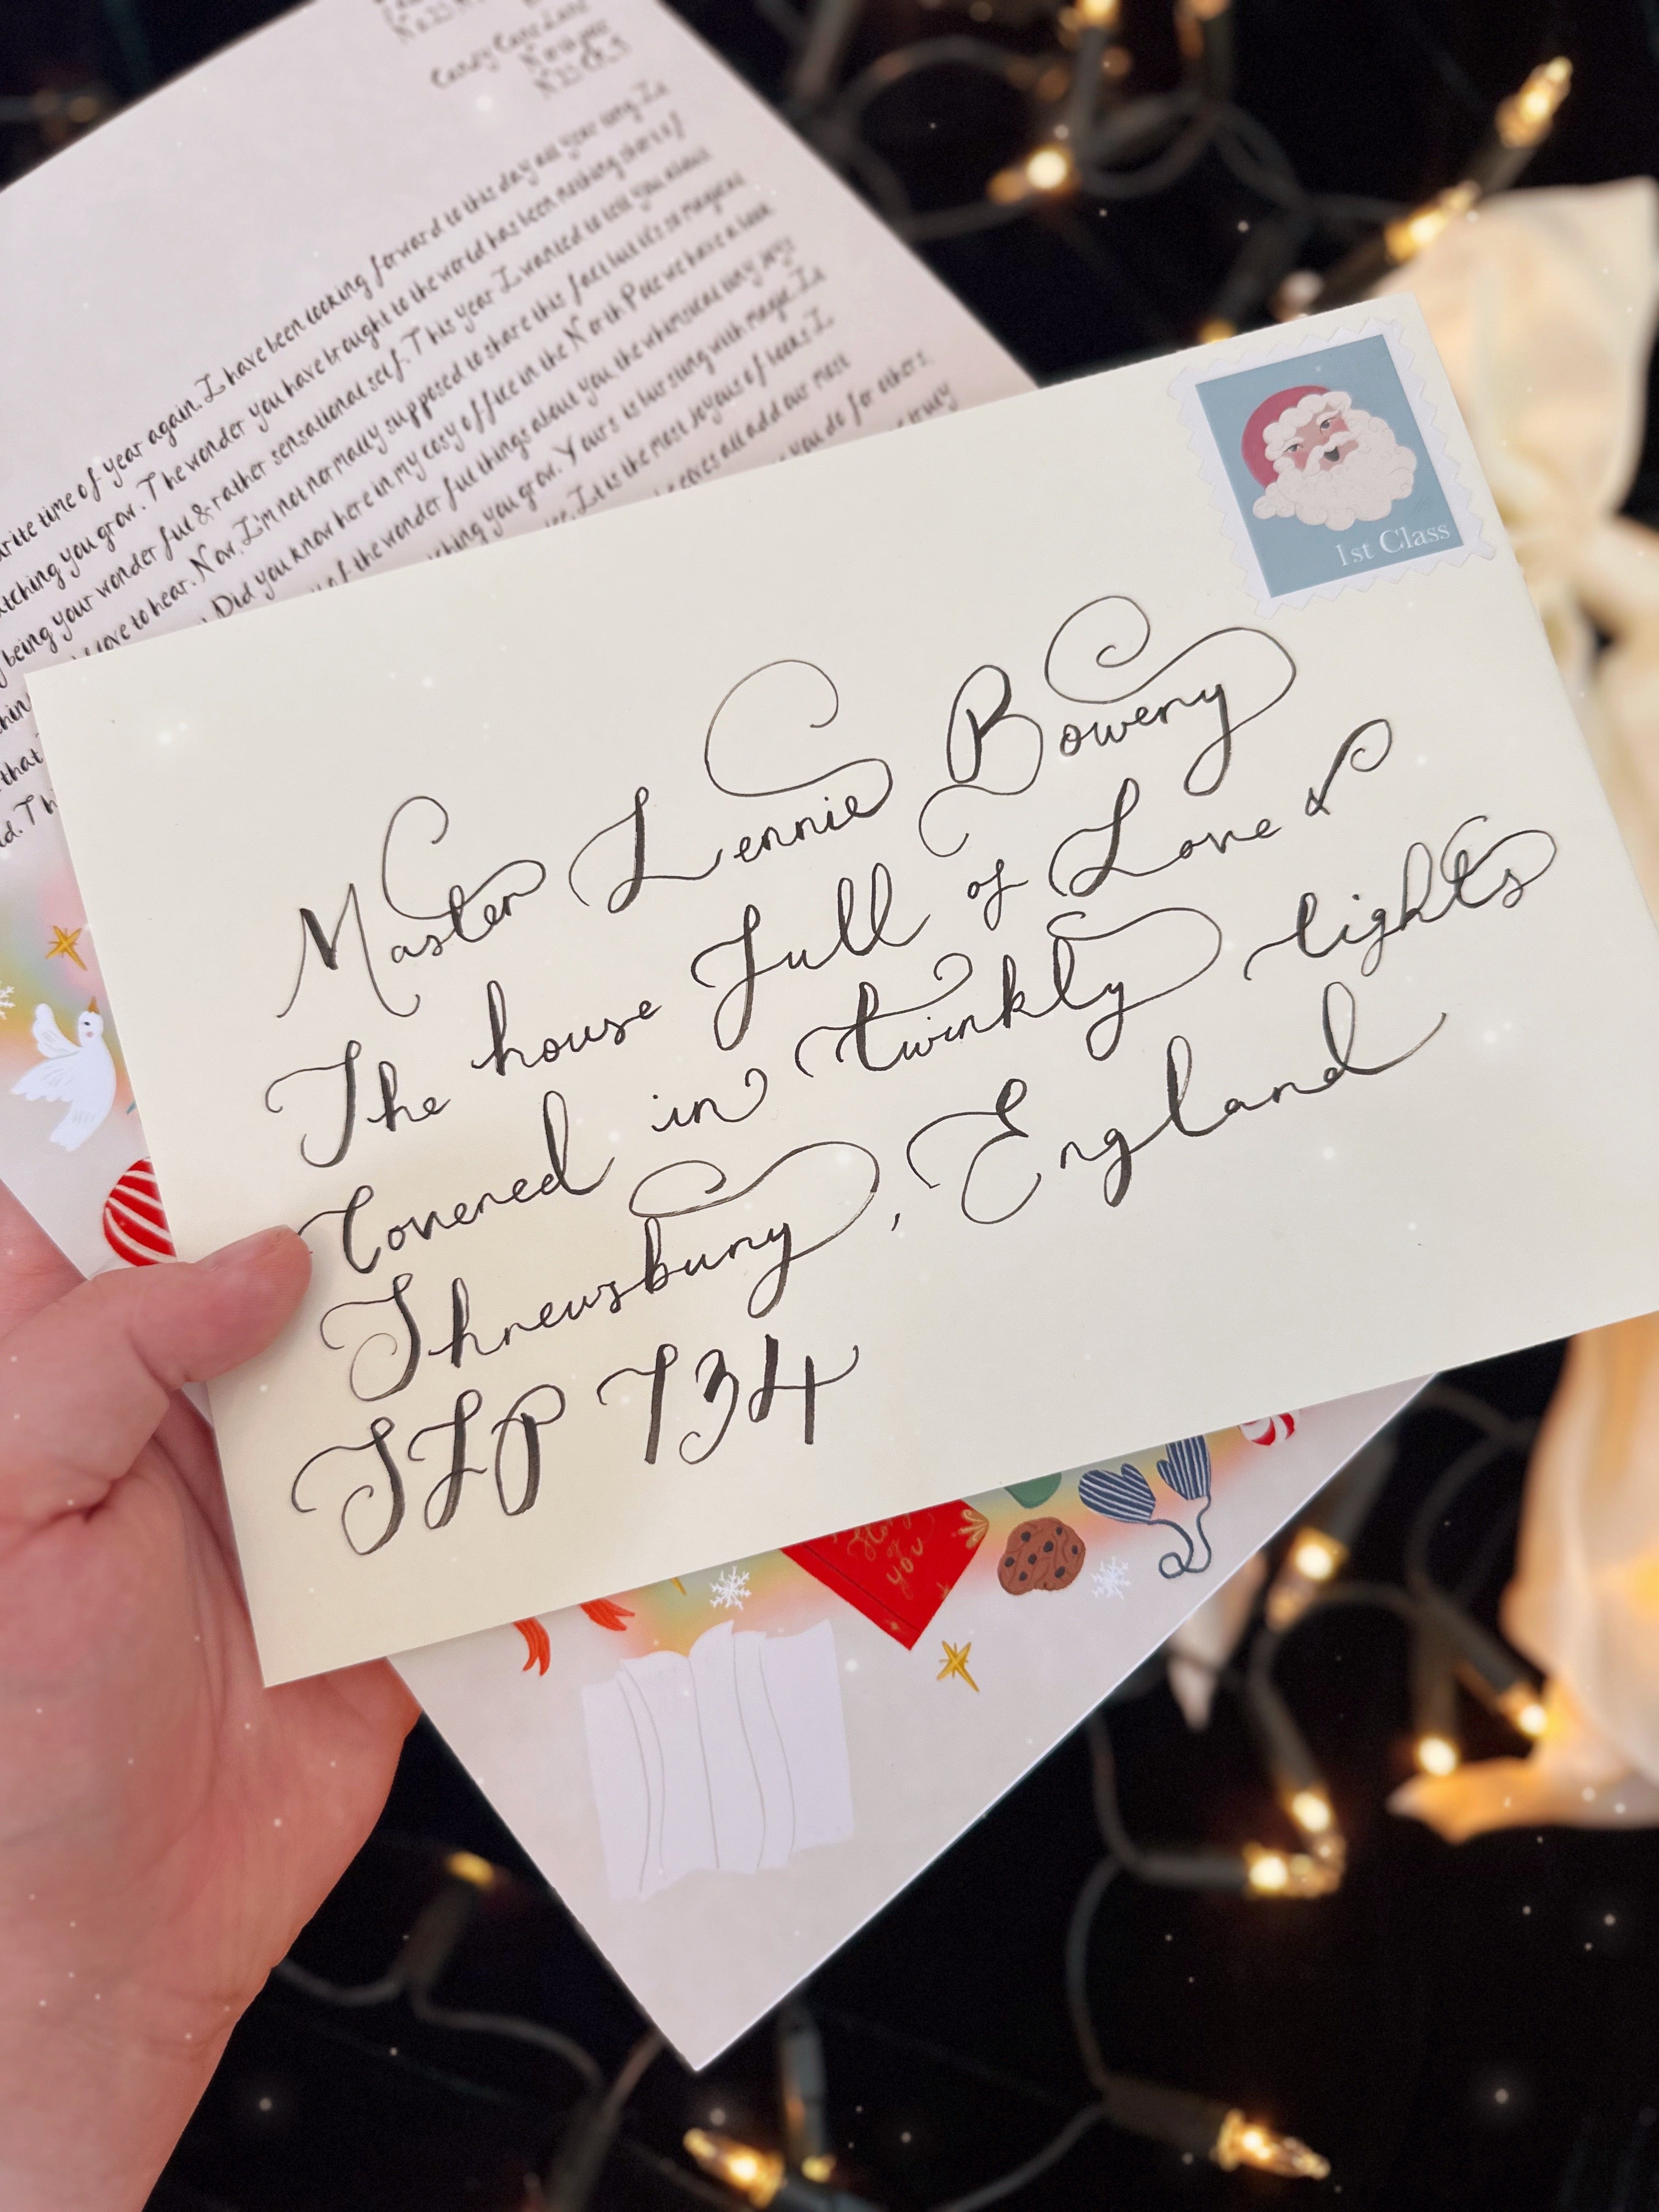 Candy Cane Lane
arite time of year again. I have been looking forward to this day all year long. I
atching you grow. The wonder you have brought to the world has been nothing short of
being your wonderful & rather sensational self. This year I wanted to tell you about
love to hear. Now, I'm not normally supposed to share this fact but it's so magical
Did you know here in my cosy office in the North Pole we have a book
of the wonderful things about you the whimsical way you
tching you grow. Yours is bursting with magic. I
It is the most joyous of books I
elves all add our most
you do for others.
truly
that
1st Class
Master Lennie Bowery
The house full of Love &
Covered in twinkly lights
Shrewsbury, England
SLP 734
you